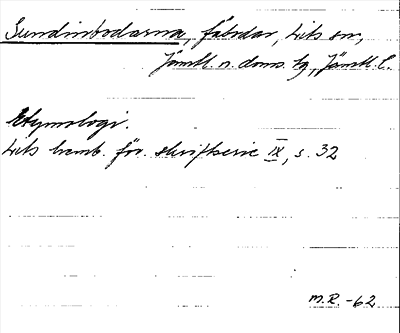 Sundinbodarna, fäbodar, Lits sn,
Jämtl. n. doms. tg, Jämtl. l.
Etymologi.
Lits hemb. för. skriftserie IX, s. 32
M.R. -62